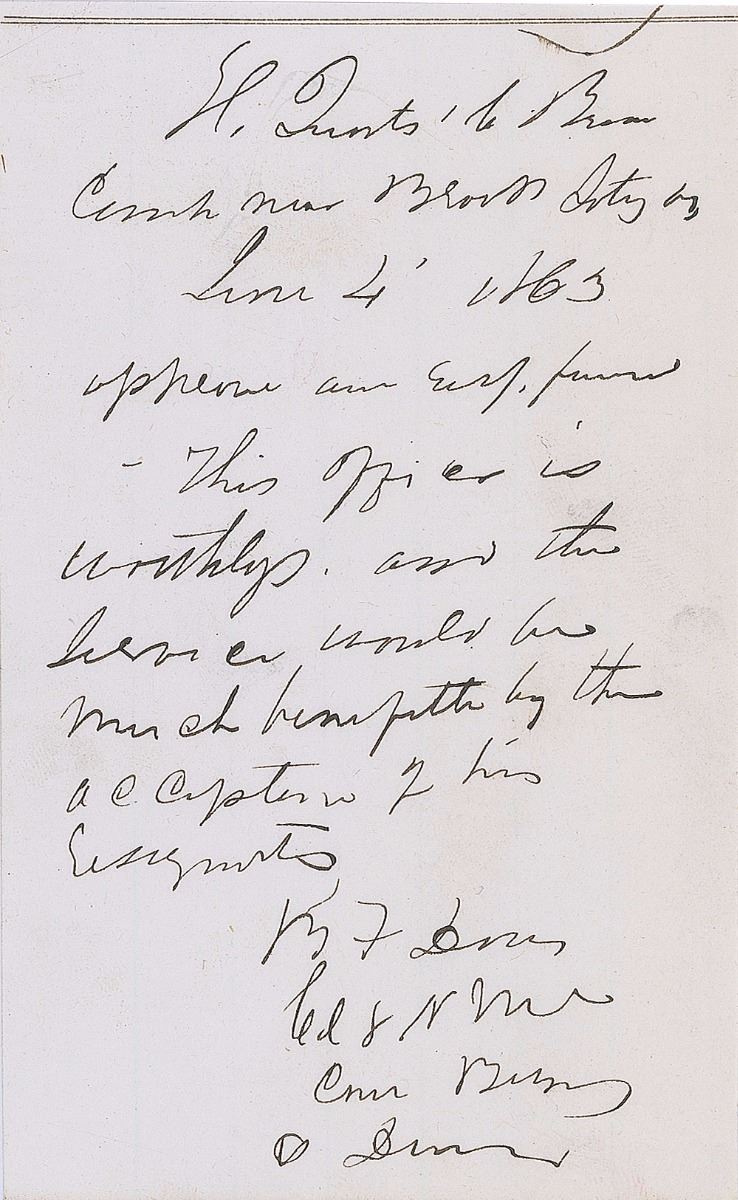 H. Quarts 1' Brig
Camp near Brooks Sta Va
June 4' 1863
approved and resp. forwd
- This Officer is
worthless. and the
service would be
much benefitte by the
acceptance of his
Resignation
B F Davis
Col 8 N Y
Com Brig